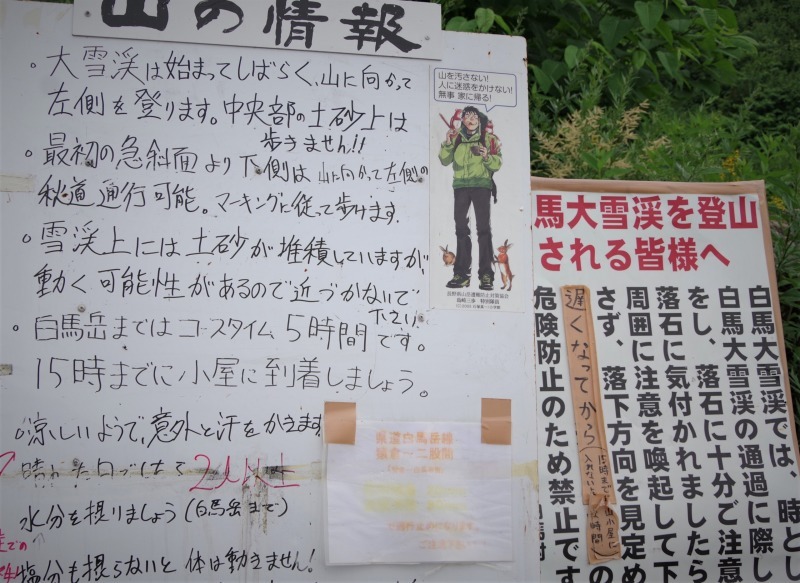 山の情報
・大雪渓は始まってしばらく、山に向かって
左側を登ります。中央部の土砂上は
歩きません!!
・最初の急斜面より下側は山に向かって左側の
秋道通行可能。マーキングに従って歩けます。
・雪渓上には土砂が堆積していますが、
動く可能性があるので近づかないで
下さい。
・白馬岳まではコースタイム5時間です。
15時までに小屋に到着しましょう。
涼しいようで、意外と汗をかきます
2L以上
水分を摂りましょう(白馬岳まで)
塩分も摂らないと体は動きません!
山を汚さない!
人に迷惑をかけない!
無事 家に帰る!
猿倉
馬大雪渓を登山
される皆様へ
白馬大雪渓では、時とし
白馬大雪渓の通過に際し
をし、落石に十分ご注意
落石に気付かれましたら
周囲に注意を喚起して下
さず、落下方向を見定め
遅くなってから
危険防止のため禁止です